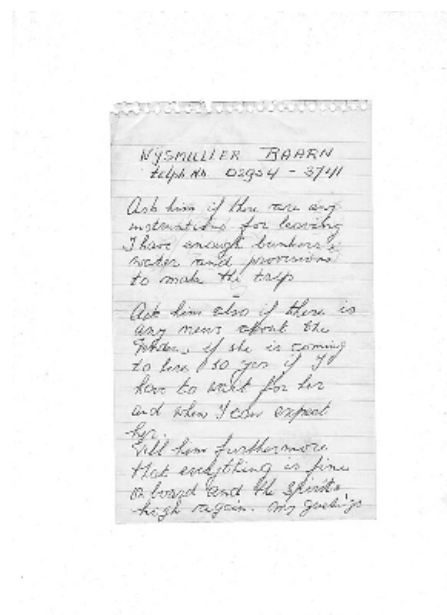 NYSMULLER BAARN
telph No 02954 - 3741
Ask him if there are any
instructions for leaving
I have enough bunkers
water and provisions
to make the trip
Ask him also if there is
any news about the
if she is coming
to here, so yes if I
have to wait for her
and when I can expect
her.
Tell him furthermore
that everything is fine
on board and the spirits
high again. My greetings